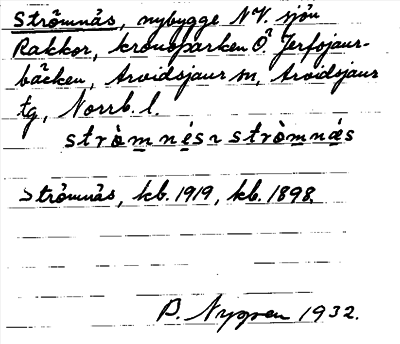 Strömnäs, nybygge N.V. sjön
Rakkor, kronoparken Ö. Jerfojaur-
bäcken, Arvidsjaur sn, Arvidsjaur
tg, Norrb. l.
stròmnés ~ stròmnǽs
Strömnäs, kb. 1919, kb. 1898.
P. Nygren 1932.